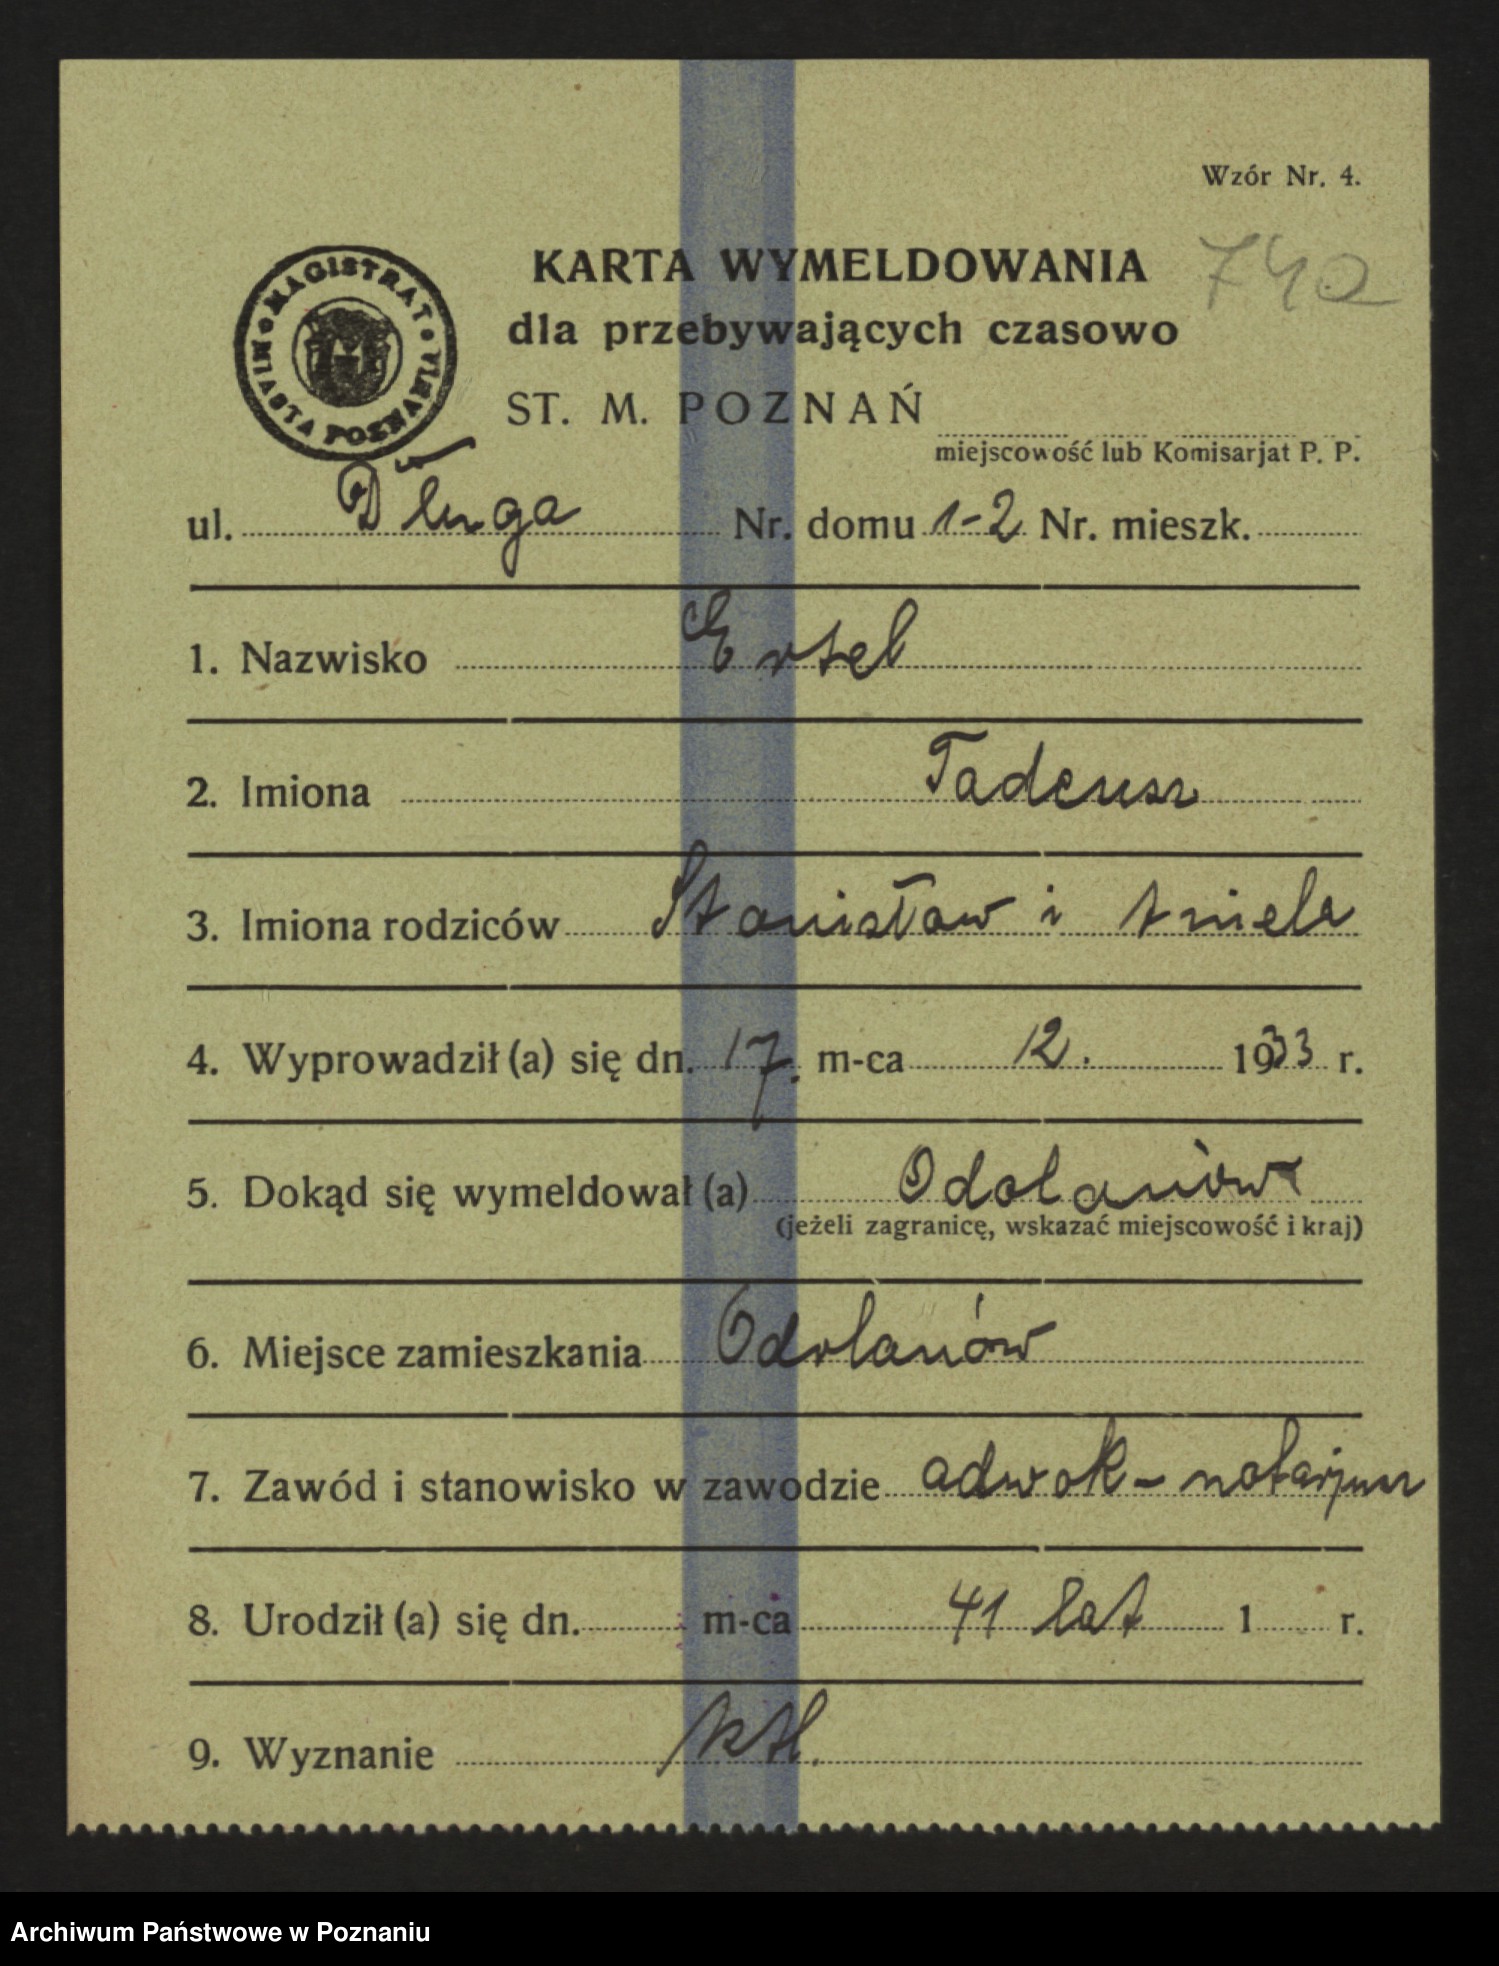 Wzór Nr. 4.
MAGISTRAT MIASTA POZNANIA
KARTA WYMELDOWANIA 742
dla przebywających czasowo
ST. M. POZNAŃ
miejscowość lub Komisarjat P. P.
ul. Długa Nr. domu 1-2 Nr. mieszk.
1. Nazwisko Ertel
2. Imiona Tadeusz
3. Imiona rodziców Stanisław i Aniela
4. Wyprowadził (a) się dn. 17. m-ca 12. 1933 r.
5. Dokąd się wymeldował (a) Odolanów
(jeżeli zagranicę, wskazać miejscowość i kraj)
6. Miejsce zamieszkania Odolanów
7. Zawód i stanowisko w zawodzie adwok-notarjusz
8. Urodził (a) się dn. m-ca 41 lat 1 r.
9. Wyznanie ktl.
Archiwum Państwowe w Poznaniu